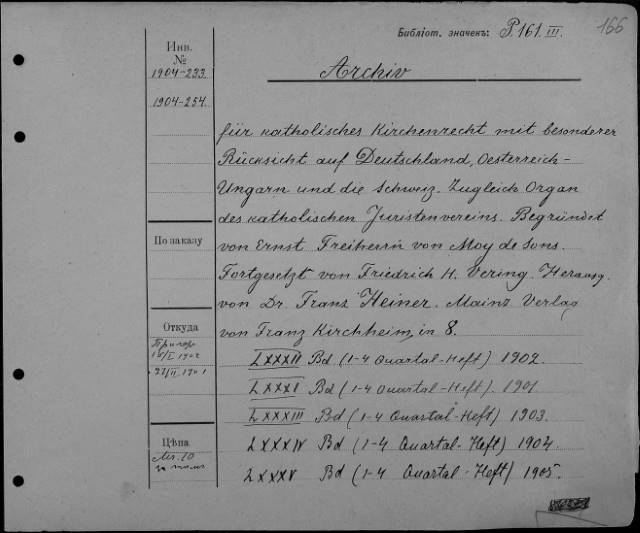 Библіот. значекъ: P. 161. III. 166
Инв.
№
1904-233.
1904-254.
Archiv
für katholisches Kirchenrecht mit besonderer
Rücksicht auf Deutschland, Oesterreich-
Ungarn und die Schweiz. Zugleich Organ
des katholischen Juristenvereins. Begründet
von Ernst Freiherrn von Moy de Sons.
Fortgesetzt von Friedrich H. Vering. Herausg.
von Dr. Franz Heiner. Mainz Verlag
von Franz Kirchheim, in 8.
По заказу
Откуда
LXXXII Bd (1-4 Quartal-Heft) 1902.
LXXXI Bd (1-4 Quartal-Heft). 1901
LXXXIII Bd (1-4 Quartal-Heft) 1903.
LXXXIV Bd (1-4 Quartal-Heft) 1904.
LXXXV Bd (1-4 Quartal-Heft) 1905.
Цѣна